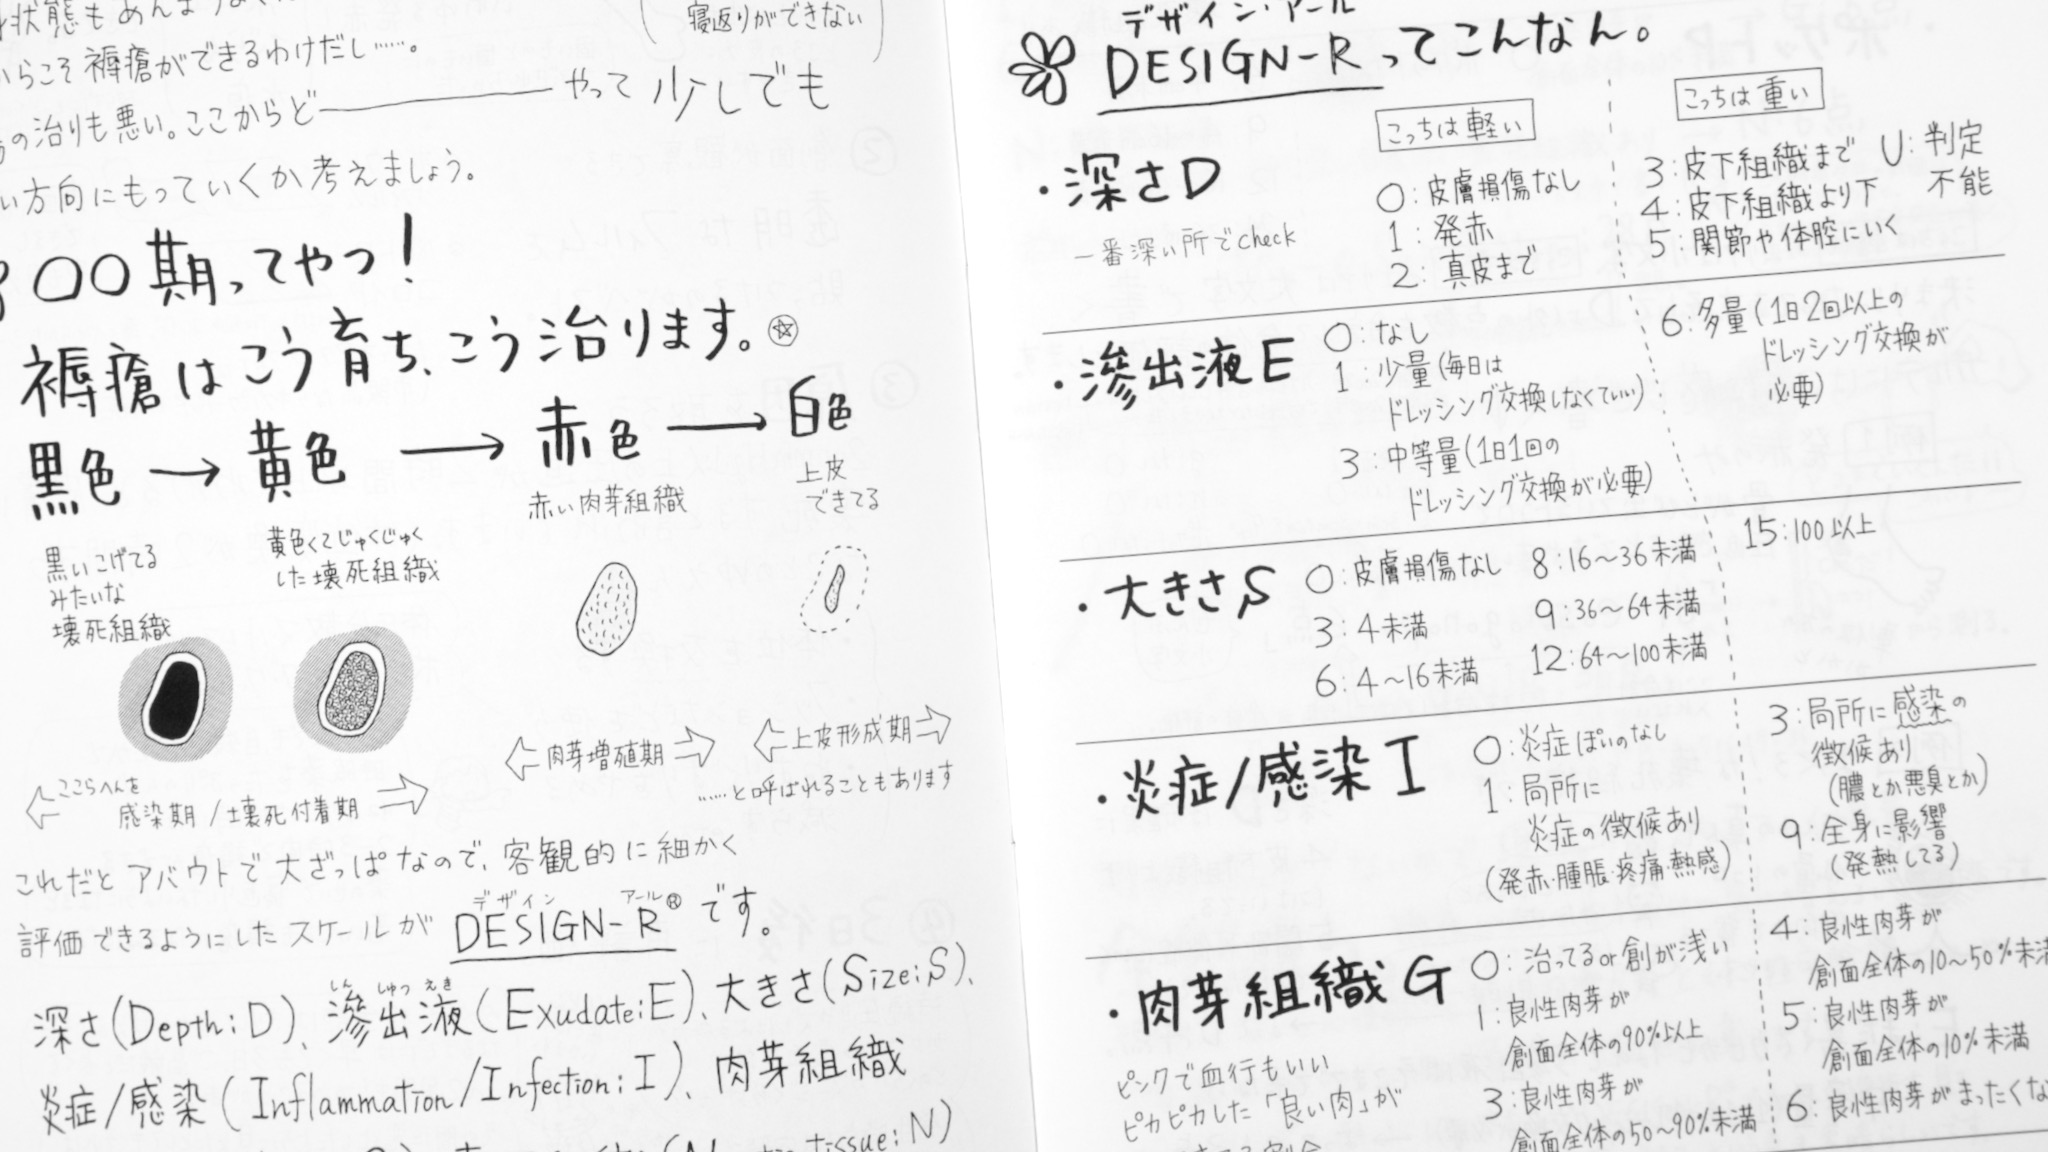 状態もあんま
寝返りができない
からこそ褥瘡ができるわけだし……。
の治りも悪い。ここからど――やって少しでも
い方向にもっていくか考えましょう。
〇〇期ってやつ！
褥瘡はこう育ち、こう治ります。☆
黒色→黄色→赤色→白色
黒いこげてる
みたいな
壊死組織
黄色くてじゅくじゅく
した壊死組織
赤い肉芽組織
上皮
できてる
ここらへんを
感染期/壊死付着期
肉芽増殖期
上皮形成期
……と呼ばれることもあります
これだとアバウトで大ざっぱなので、客観的に細かく
デザイン アール
評価できるようにしたスケールがDESIGN-R®です。
しん しゅつ えき
深さ(Depth:D)、滲出液(Exudate:E)、大きさ(Size:S)、
炎症/感染(Inflammation/Infection:I)、肉芽組織
tissue:N)
デザイン・アール
DESIGN-Rってこんなん。
こっちは軽い
こっちは重い
・深さD
一番深い所でcheck
0:皮膚損傷なし
1:発赤
2:真皮まで
3:皮下組織まで
4:皮下組織より下
5:関節や体腔にいく
U:判定
不能
・滲出液E
0:なし
1:少量(毎日は
ドレッシング交換しなくていい)
3:中等量(1日1回の
ドレッシング交換が必要)
6:多量(1日2回以上の
ドレッシング交換が
必要)
・大きさS
0:皮膚損傷なし
3:4未満
6:4～16未満
8:16～36未満
9:36～64未満
12:64～100未満
15:100以上
・炎症/感染I
0:炎症ぽいのなし
1:局所に
炎症の徴候あり
(発赤・腫脹・疼痛・熱感)
3:局所に感染の
徴候あり
(膿とか悪臭とか)
9:全身に影響
(発熱してる)
・肉芽組織G
ピンクで血行もいい
ピカピカした「良い肉」が
0:治ってるor創が浅い
1:良性肉芽が
創面全体の90%以上
3:良性肉芽が
創面全体の50～90%未満
4:良性肉芽が
創面全体の10～50%未満
5:良性肉芽が
創面全体の10%未満
6:良性肉芽がまったくな